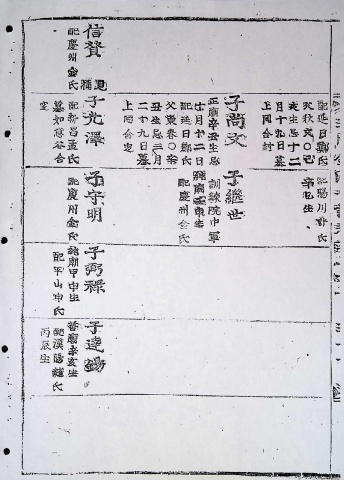 信贊
配慶州金氏
配延日鄭氏
亥生忌十二
月十九日墓
上同合封
子尙文
正廟辛丑生忌
十月廿二日
配延日鄭氏
父東春○辛
丑生忌三月
二十九日墓
上同合窆
子光澤
配新昌孟氏
墓如意谷合
窆
配陽川許氏
子繼世
訓練院中軍
配慶州金氏
子守明
配慶州金氏
子弼祿
純廟甲申生
配平山申氏
子達錫
哲廟辛亥生
配漢陽趙氏
丙辰生